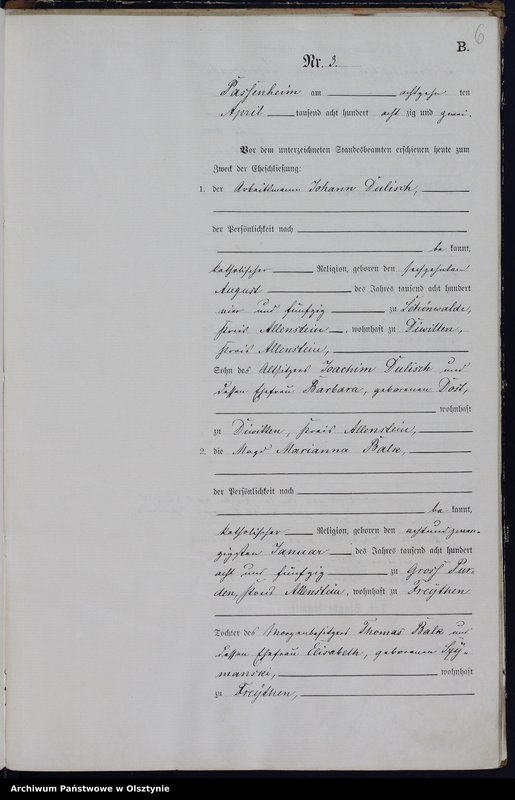 6
B.
Nr. 3.
Passenheim am achtzehn ten
April tausend acht hundert acht zig und zwei.
Vor dem unterzeichneten Standesbeamten erschienen heute zum
Zweck der Eheschließung:
1. der Arbeitsmann Johann Dulisch,
der Persönlichkeit nach
be kannt,
katholischer Religion, geboren den sechzehnten
August des Jahres tausend acht hundert
vier und fünfzig zu Schönwalde,
Kreis Allenstein, wohnhaft zu Diwitten,
Kreis Allenstein,
Sohn des Altsitzers Joachim Dulisch und
dessen Ehefrau Barbara, geborenen Dost,
wohnhaft
zu Diwitten, Kreis Allenstein,
2. die Magd Marianna Balk,
der Persönlichkeit nach
be kannt,
katholischer Religion, geboren den achtundzwan-
zigsten Januar des Jahres tausend acht hundert
acht und fünfzig zu Gross Pur-
den, Kreis Allenstein, wohnhaft zu Freÿthen
Tochter des Morgenbesitzers Thomas Balk und
dessen Ehefrau Elisabeth, geborenen Szÿ-
manski, wohnhaft
zu Freÿthen,
Archiwum Państwowe w Olsztynie